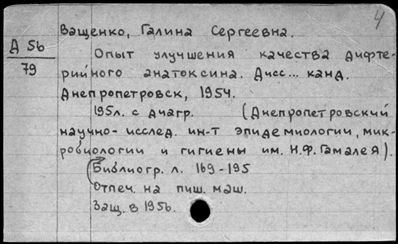 4
Ващенко, Галина Сергеевна.
Д 56
79
Опыт улучшения качества дифте-
рийного анатоксина. Дисс... канд.
Днепропетровск, 1954.
195л. с диагр. (Днепропетровский
научно-исслед. ин-т эпидемиологии, мик-
робиологии и гигиены им. Н.Ф. Гамалея).
Библиогр. л. 169-195
Отпеч. на пиш. маш.
Защ. в 1956.